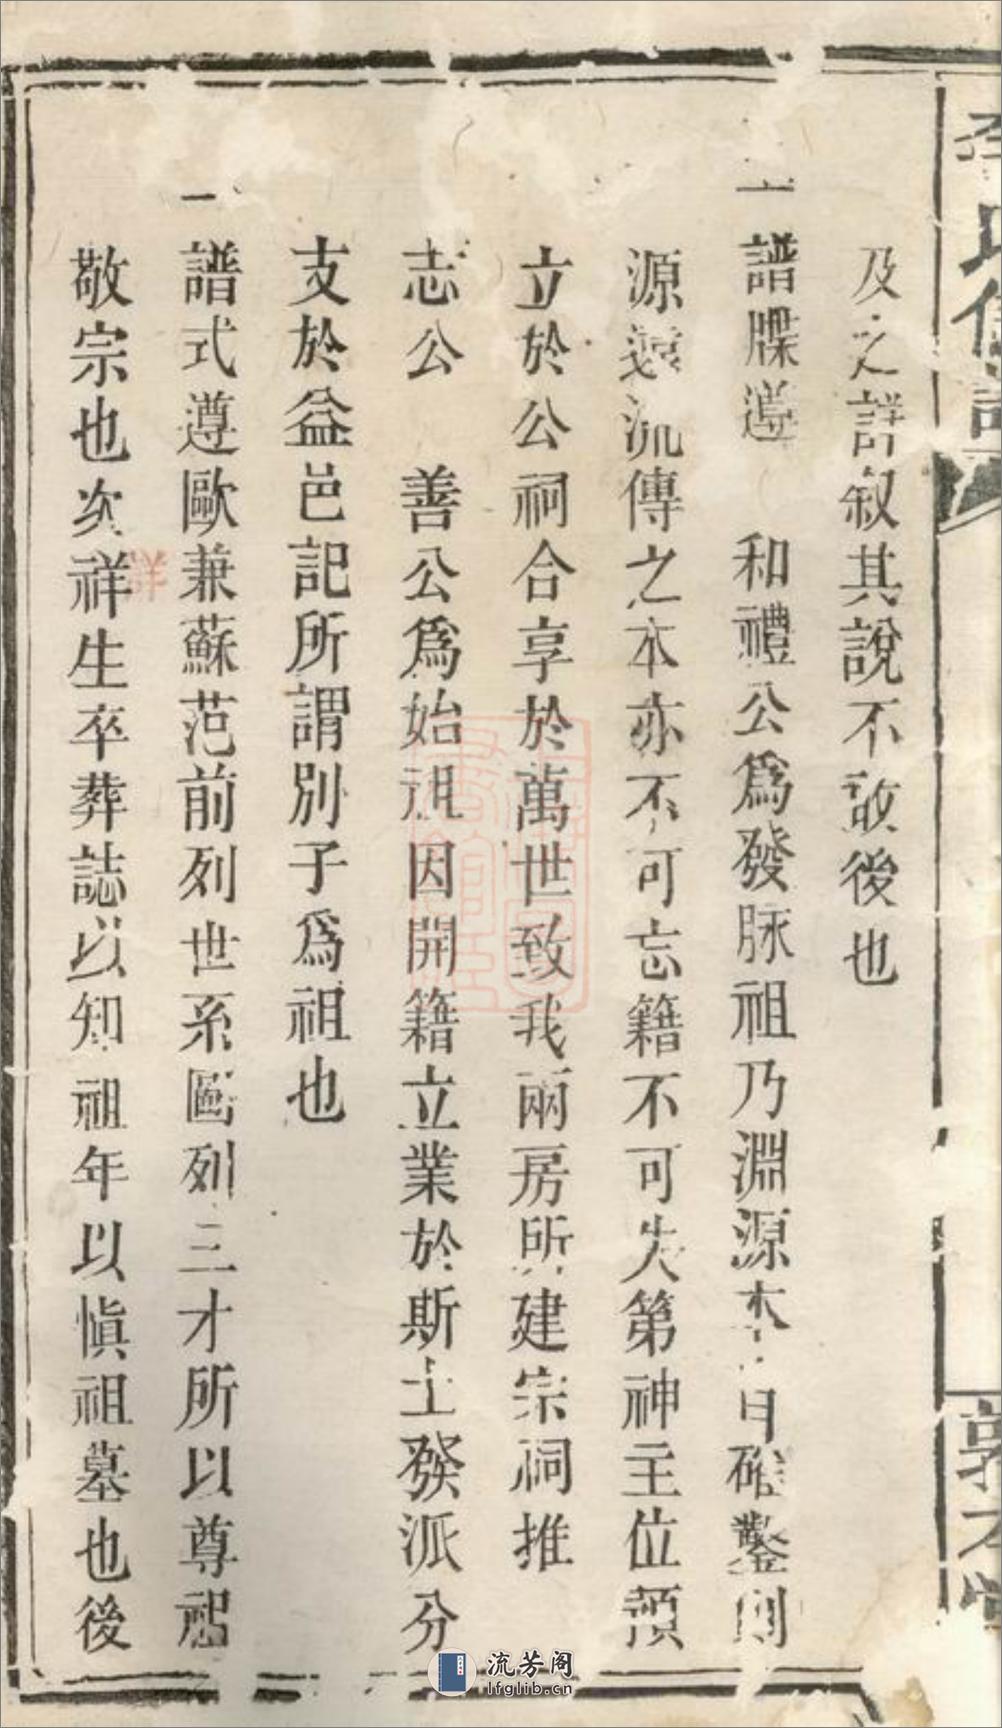 及之詳叙其說不敢後也
一譜牒遵 和禮公爲發脉祖乃淵源本自確鑿則
源遠流傳之本亦不可忘籍不可失第神主位預
立於公祠合享於萬世致我兩房所建宗祠推
志公 善公爲始祖因開籍立業於斯土發派分
支於益邑記所謂別子爲祖也
一譜式遵歐兼蘇范前列世系圖列三才所以尊祖
敬宗也次祥生卒葬誌以知祖年以愼祖墓也後
詳
流芳阁
lfglib.cn